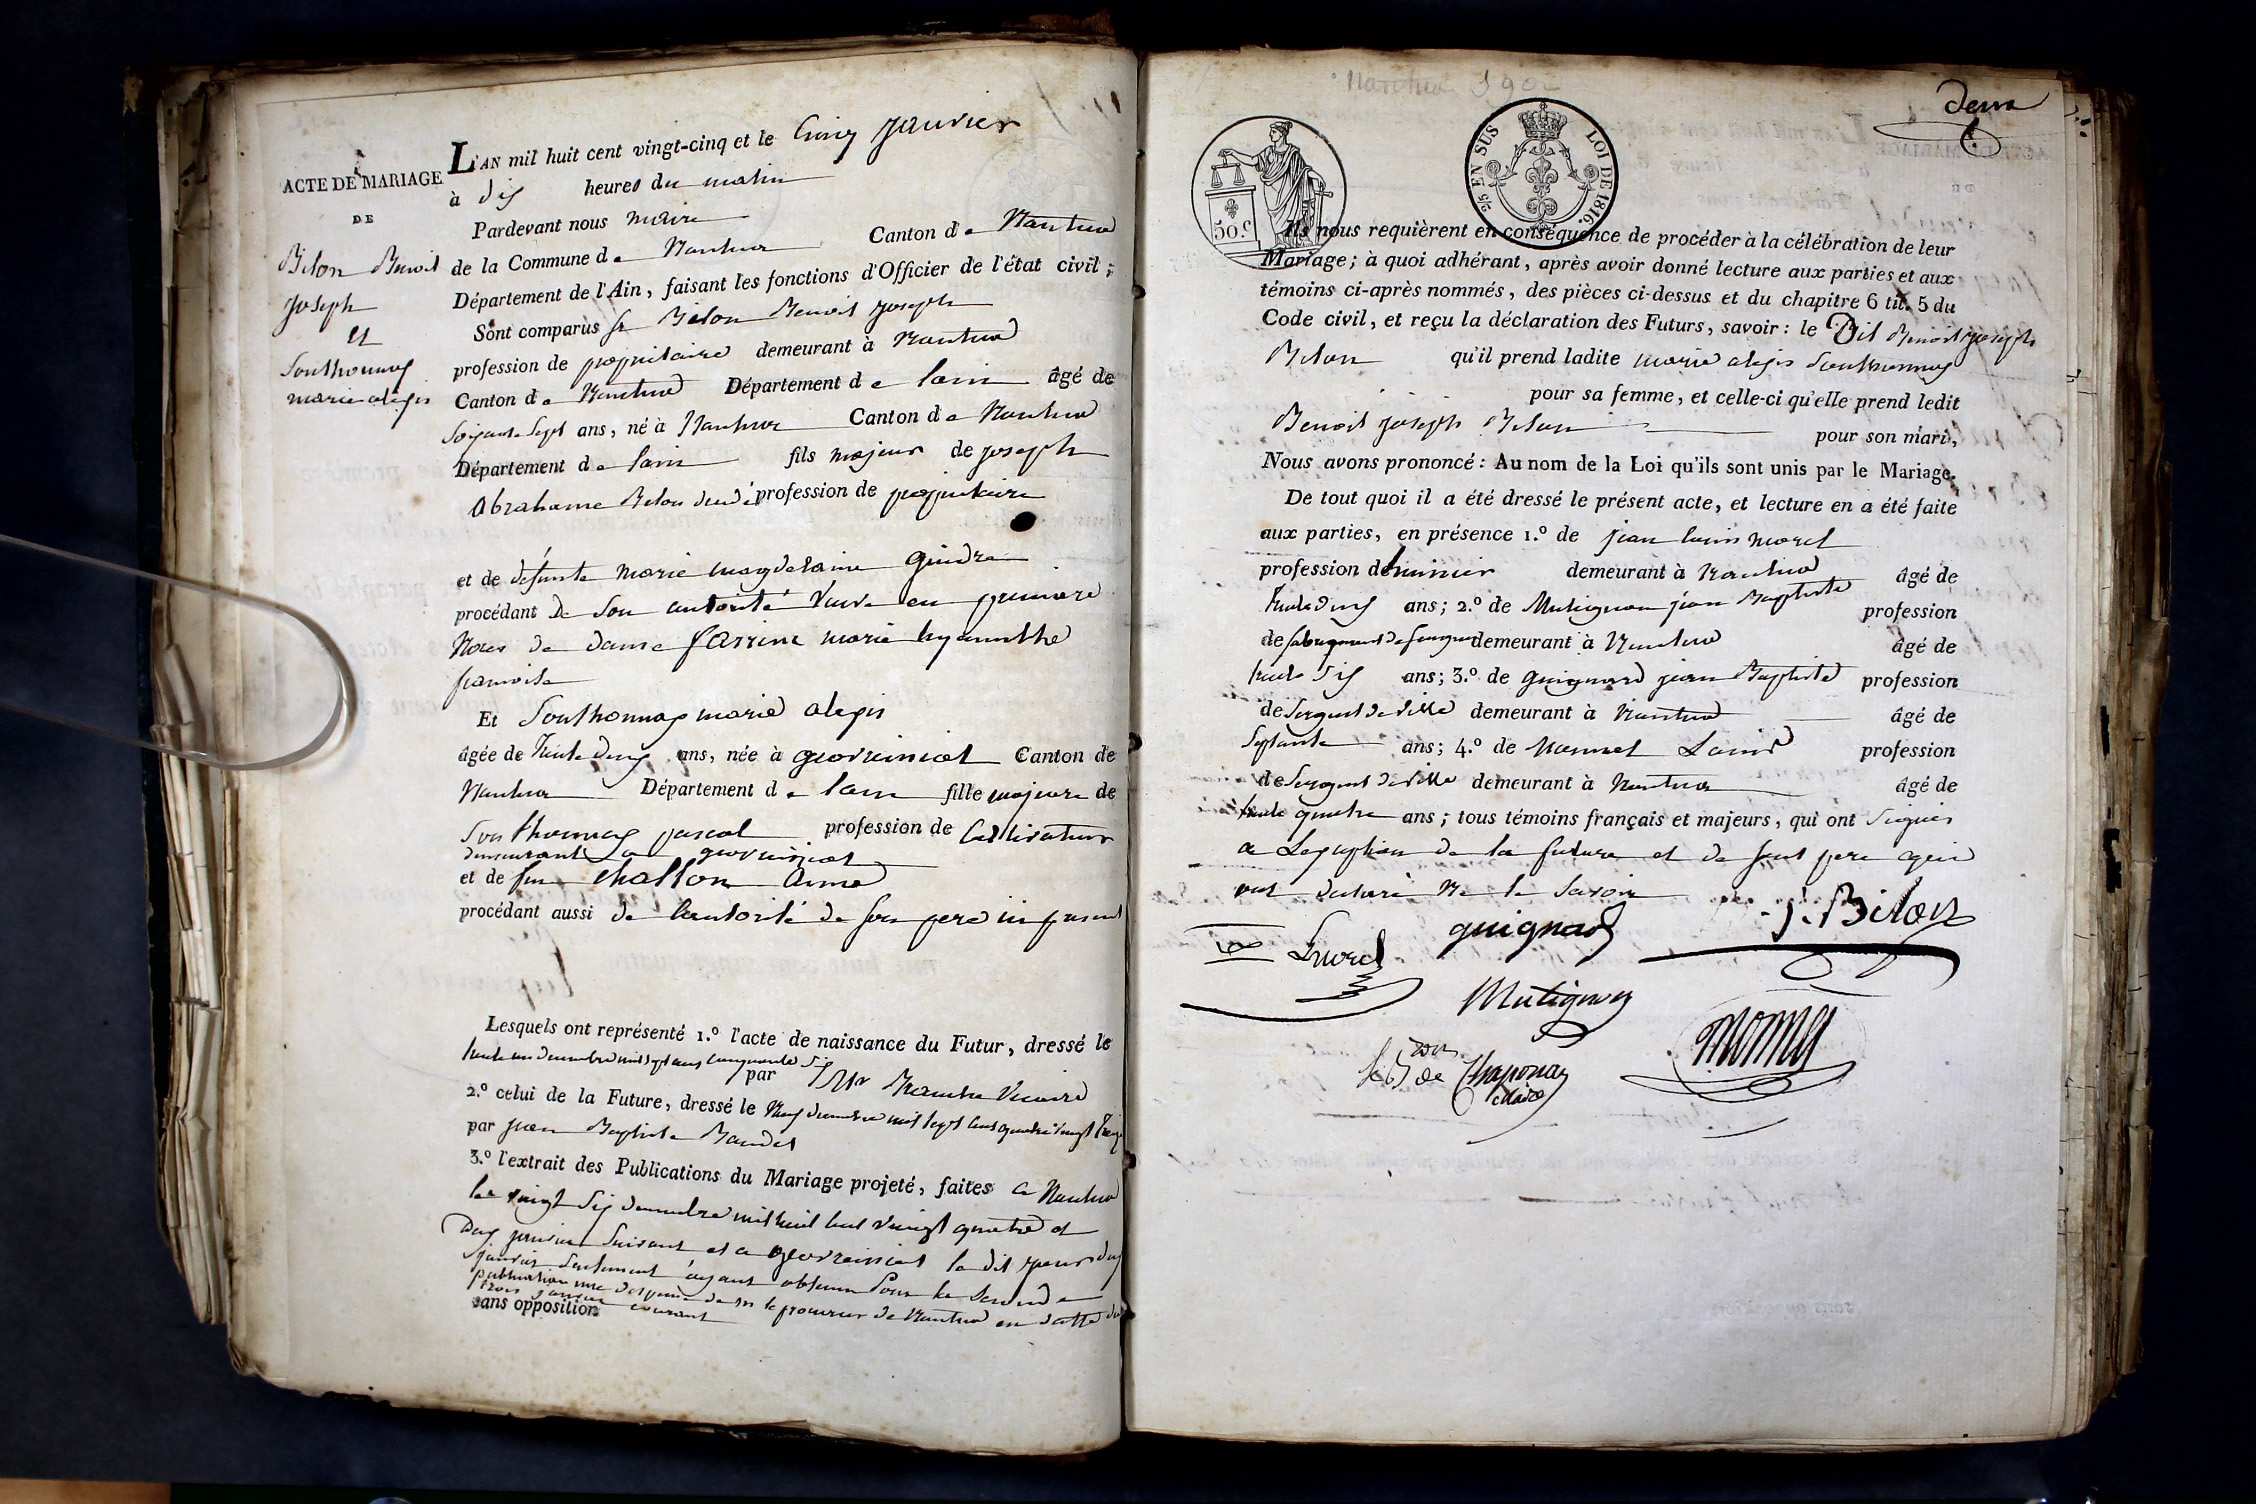 ACTE DE MARIAGE
DE
Bilon Benoit
joseph
et
Southonnax
marie alexis
L'AN mil huit cent vingt-cinq et le Cinq janvier
à dix heures du matin
Pardevant nous maire
de la Commune de Nantua Canton de Nantua
Département de l'Ain, faisant les fonctions d'Officier de l'état civil;
Sont comparus sr Bilon Benoit joseph
profession de propriétaire demeurant à Nantua
Canton de Nantua Département de lain âgé de
soixante sept ans, né à Nantua Canton de Nantua
Département de lain fils majeur de joseph
abrahame Bilon profession de propriétaire
et de defunte marie magdelaine Guidra
procédant De son autorité en premiere
Noces de dame marie hyacinthe
francoise
Et Southonnax marie alexis
âgée de trente deux ans, née à geovreissiat Canton de
Nantua Département de lain fille majeure de
Southonnax pascal profession de Cultivateur
demeurant a geovreissiat
et de feue Challon anne
procédant aussi de lautorité de son pere ici present
Lesquels ont représenté 1.º l'acte de naissance du Futur, dressé le
trente un decembre mil sept cent cinquante six
par Mr Vicaire
2.º celui de la Future, dressé le neuf decembre mil sept cent quatre vingt treize
par jean Baptiste Baudet
3.º l'extrait des Publications du Mariage projeté, faites a Nantua
les vingt six decembre mil huit cent vingt quatre et
deux janvier suivant et a geovreissiat le dit jour deux
janvier seulement ayant obtenu pour la seconde
publication une dispense de mr le procureur de Nantua en datte du
trois janvier courant
sans opposition
Nantua 390
deux
50 C.
25 EN SUS LOI DE 1816.
Ils nous requièrent en conséquence de procéder à la célébration de leur
Mariage; à quoi adhérant, après avoir donné lecture aux parties et aux
témoins ci-après nommés, des pièces ci-dessus et du chapitre 6 tit. 5 du
Code civil, et reçu la déclaration des Futurs, savoir: le Dit Benoit joseph
Bilon qu'il prend ladite marie alexis Southonnax
pour sa femme, et celle-ci qu'elle prend ledit
Benoit joseph Bilon pour son mari,
Nous avons prononcé: Au nom de la Loi qu'ils sont unis par le Mariage.
De tout quoi il a été dressé le présent acte, et lecture en a été faite
aux parties, en présence 1.º de jean louis morel
profession de demeurant à Nantua âgé de
trente deux ans; 2.º de Mutignon jean Baptiste profession
de fabriquant de peignes demeurant à Nantua âgé de
trente six ans; 3.º de guignard jean Baptiste profession
de sergent de ville demeurant à Nantua âgé de
septante ans; 4.º de Louis profession
de Sergent de ville demeurant à Nantua âgé de
trente quatre ans; tous témoins français et majeurs, qui ont signés
a Lexception de la future et de sont pere qui
ont declaré Ne le savoir
guignard
J. Bilon
Morel
Mutignon
de Chaponay
Maire